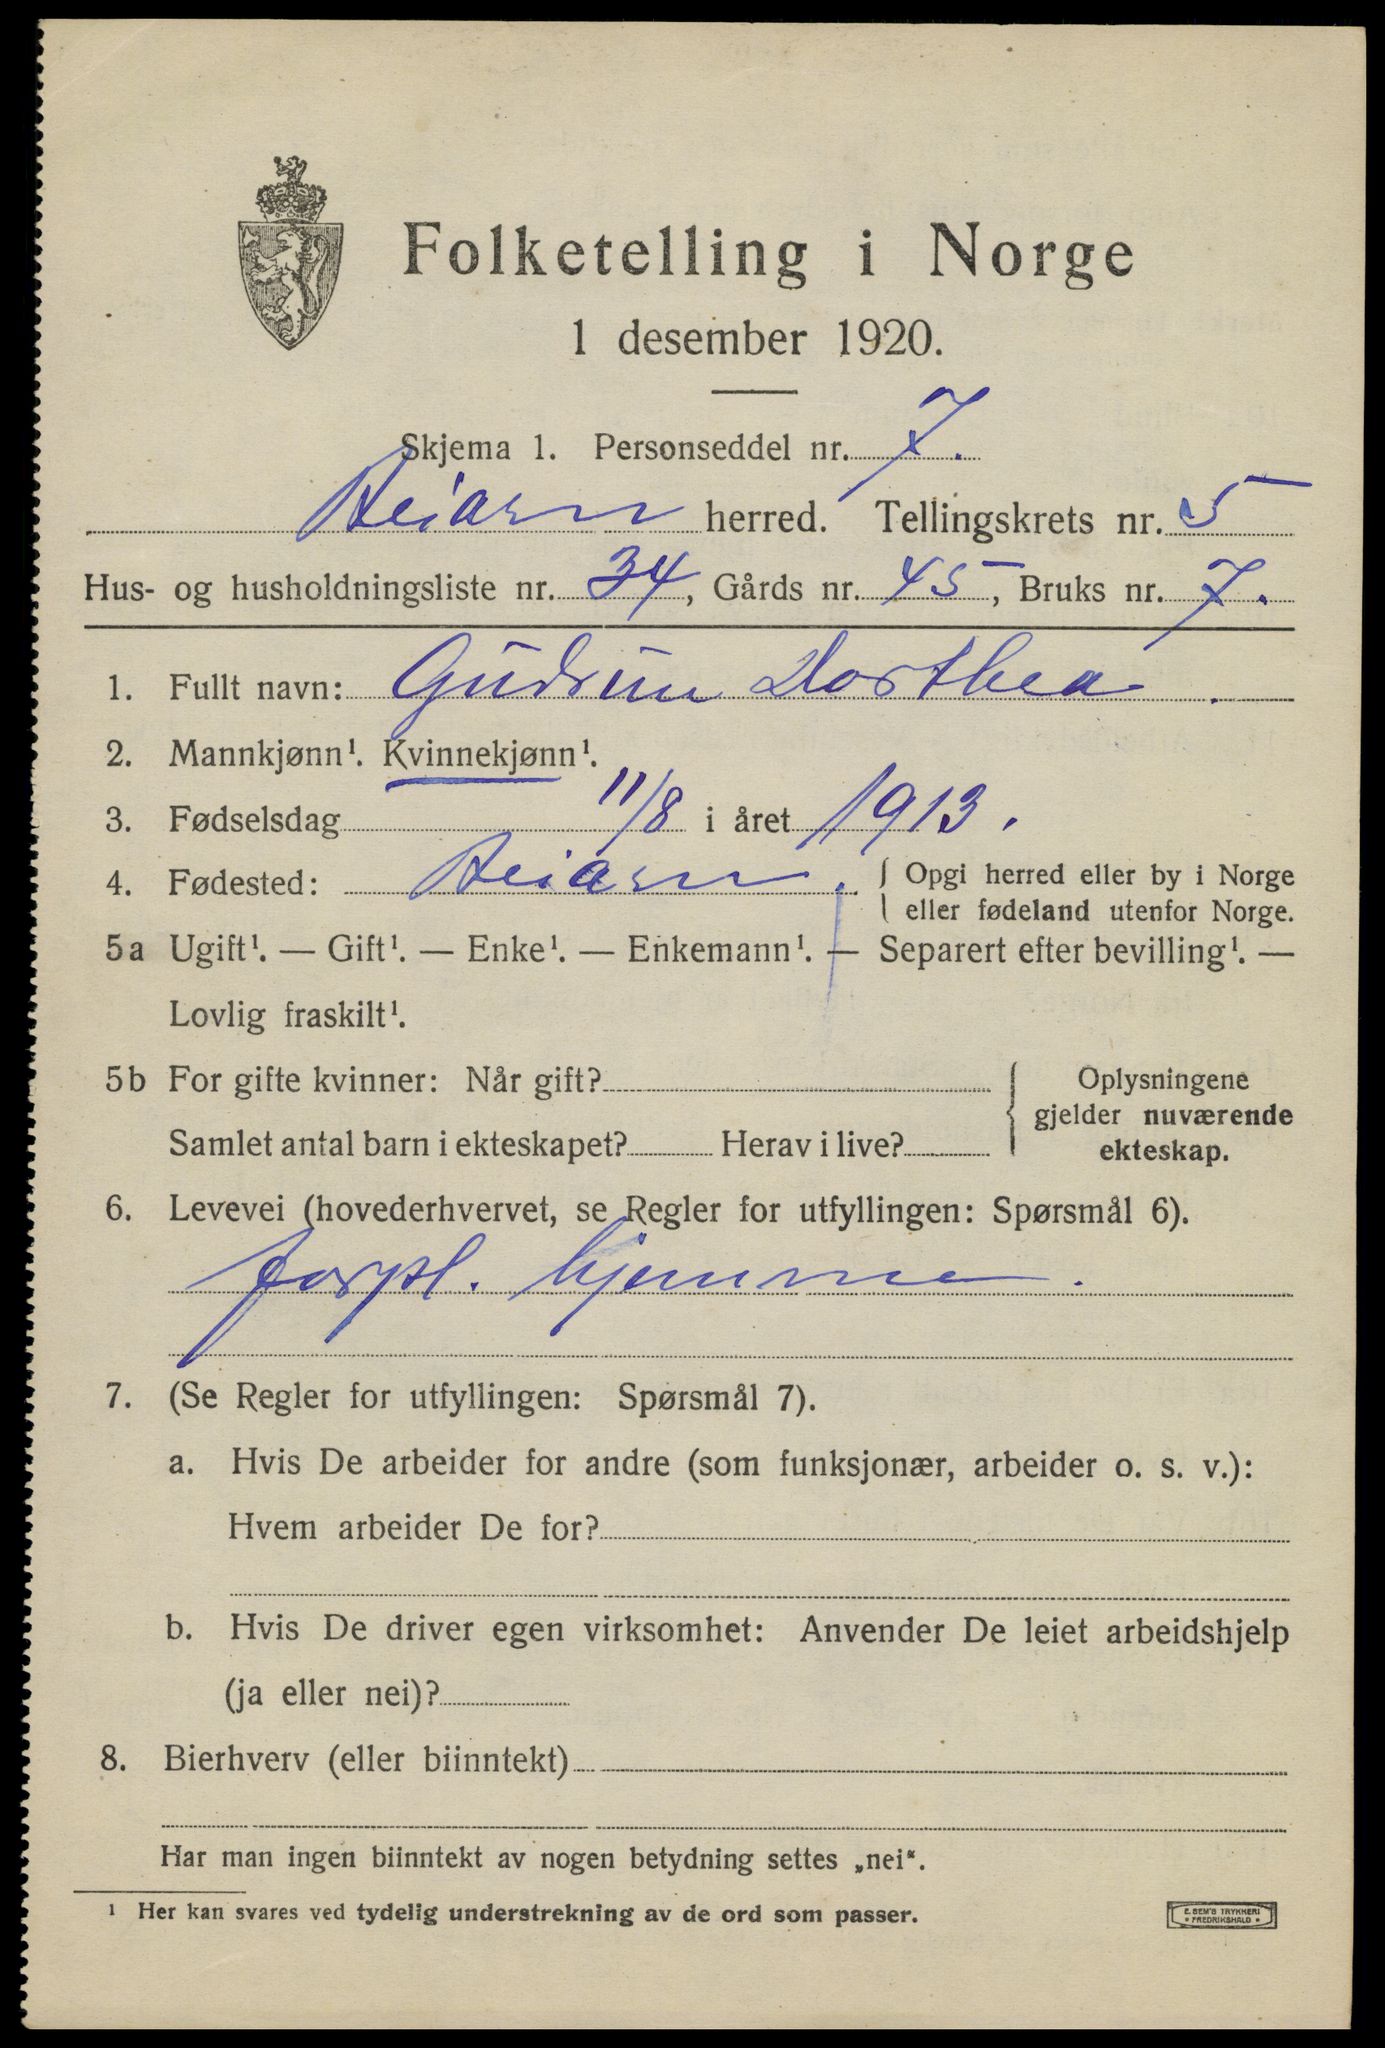 Folketelling i Norge
1 desember 1920.
Skjema 1. Personseddel nr. 7.
Beiarn herred. Tellingskrets nr. 5
Hus- og husholdningsliste nr. 34, Gårds nr. 45, Bruks nr. 7.
1. Fullt navn: Gudrun Dorthea
2. Mannkjønn¹. Kvinnekjønn¹.
3. Fødselsdag 11/8 i året 1913.
4. Fødested: Beiarn. { Opgi herred eller by i Norge
eller fødeland utenfor Norge.
5a Ugift¹. — Gift¹. — Enke¹. — Enkemann¹. — Separert efter bevilling¹. —
Lovlig fraskilt¹.
5b For gifte kvinner: Når gift?
Samlet antal barn i ekteskapet? Herav i live?
Oplysningene
gjelder nuværende
ekteskap.
6. Levevei (hovederhvervet, se Regler for utfyllingen: Spørsmål 6).
forpl. hjemme.
7. (Se Regler for utfyllingen: Spørsmål 7).
a. Hvis De arbeider for andre (som funksjonær, arbeider o. s. v.):
Hvem arbeider De for?
b. Hvis De driver egen virksomhet: Anvender De leiet arbeidshjelp
(ja eller nei)?
8. Bierhverv (eller biinntekt)
Har man ingen biinntekt av nogen betydning settes „nei“.
¹ Her kan svares ved tydelig understrekning av de ord som passer.
E. SEM'S TRYKKERI
* FREDRIKSHALD *